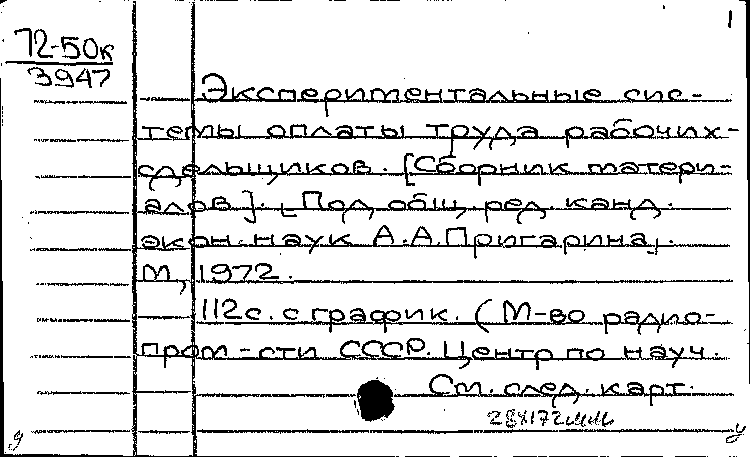 1
72-50к
3947
Экспериментальные сис-
темы оплаты труда рабочих-
сдельщиков. [Сборник матери-
алов]. [Под общ. ред. канд.
экон. наук А.А.Пригарина].
М., 1972.
112с. с график. (М-во радио-
пром-сти СССР. Центр по науч.
См. след. карт.